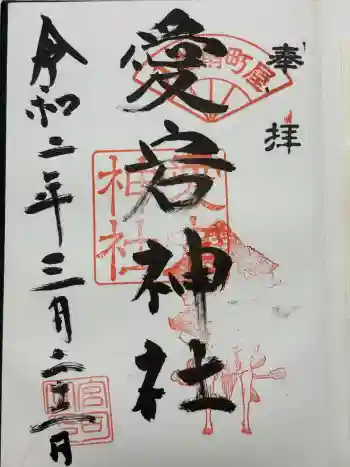 奉拝
愛宕神社
令和二年三月二十二日
町屋
神社
宮司